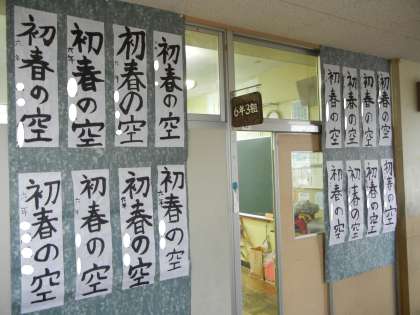 初春の空
初春の空
初春の空
初春の空
初春の空
初春の空
初春の空
初春の空
6年3組
初春の空
初春の空
初春の空
初春の空
初春の空
初春の空
初春の空
初春の空